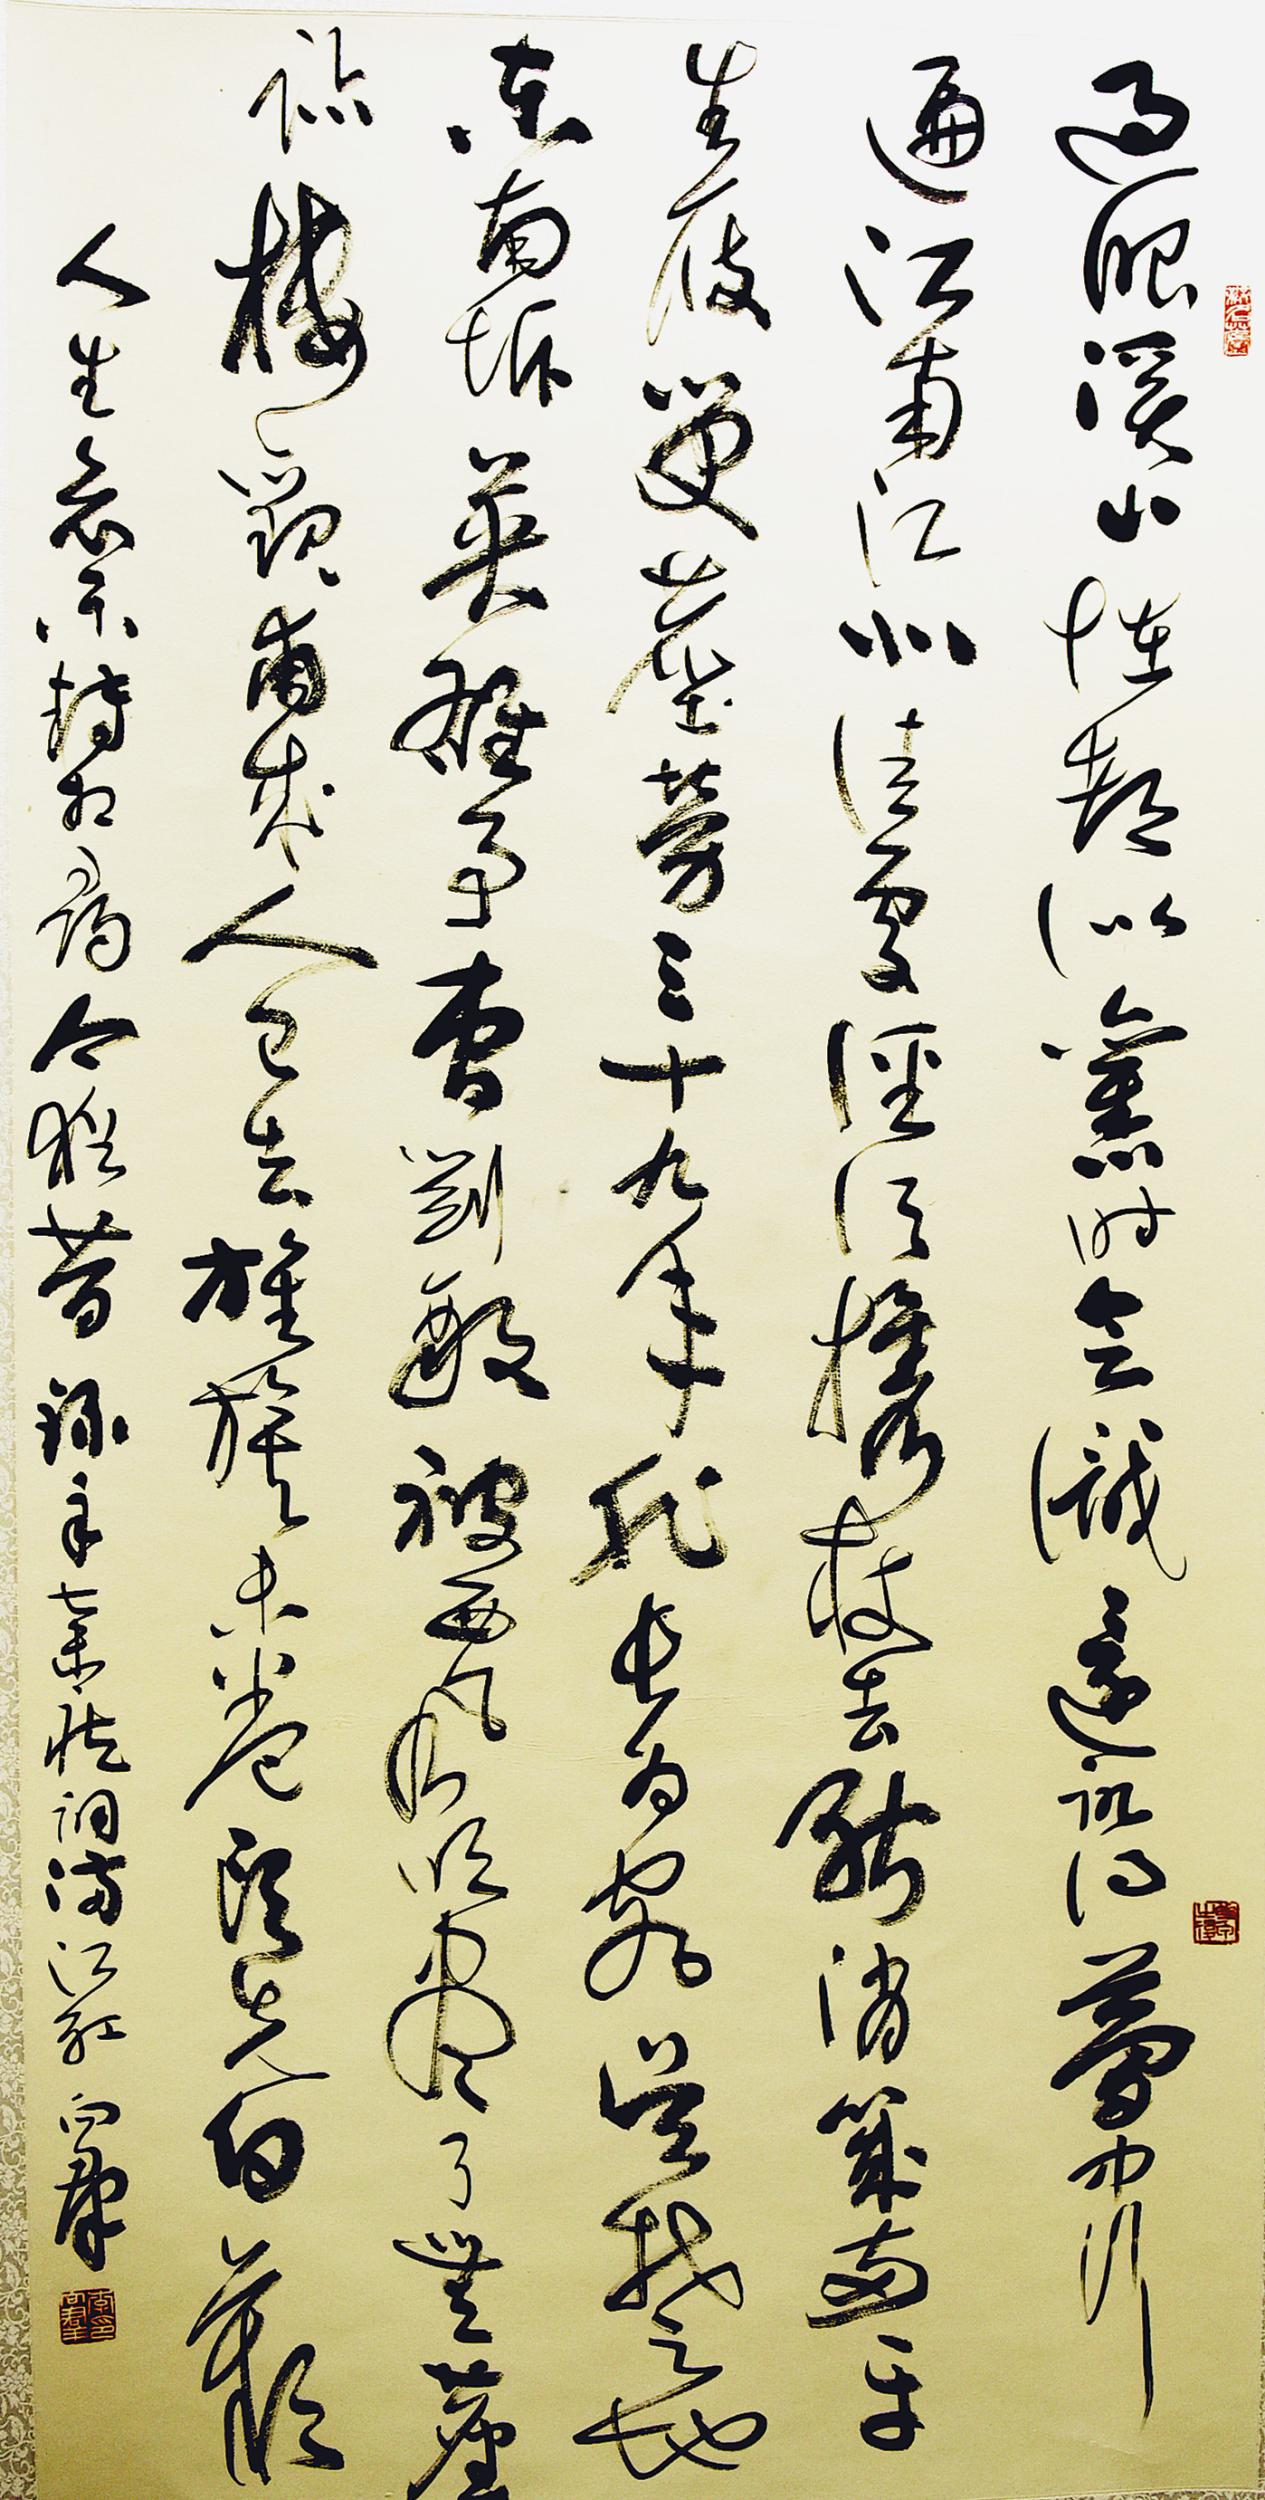 過眼溪山怪都似舊時曾識還記得夢中行
遍江南江北佳處徑須攜杖去能消幾兩平
生屐笑塵勞三十九年非長為客吳楚之地
東南坼英雄事曹劉敵被西風吹盡了無塵
跡樓觀甫成人已去旌旗未卷頭先白歎
人生哀樂轉相尋今猶昔 錄辛棄疾詞滿江紅 向